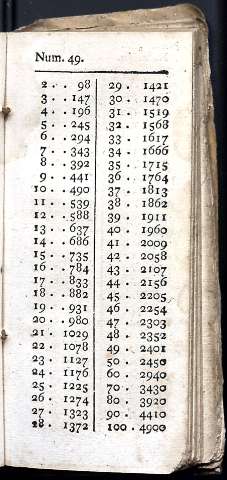 Num. 49.
2 . . 98
3 . . 147
4 . . 196
5 . . 245
6 . . 294
7 . . 343
8 . . 392
9 . . 441
10 . . 490
11 . . 539
12 . . 588
13 . . 637
14 . . 686
15 . . 735
16 . . 784
17 . . 833
18 . . 882
19 . . 931
20 . . 980
21 . 1029
22 . 1078
23 . 1127
24 . 1176
25 . 1225
26 . 1274
27 . 1323
28 . 1372
29 . 1421
30 . 1470
31 . 1519
32 . 1568
33 . 1617
34 . 1666
35 . 1715
36 . 1764
37 . 1813
38 . 1862
39 . 1911
40 . 1960
41 . 2009
42 . 2058
43 . 2107
44 . 2156
45 . 2205
46 . 2254
47 . 2303
48 . 2352
49 . 2401
50 . 2450
60 . 2940
70 . 3430
80 . 3920
90 . 4410
100 . 4900